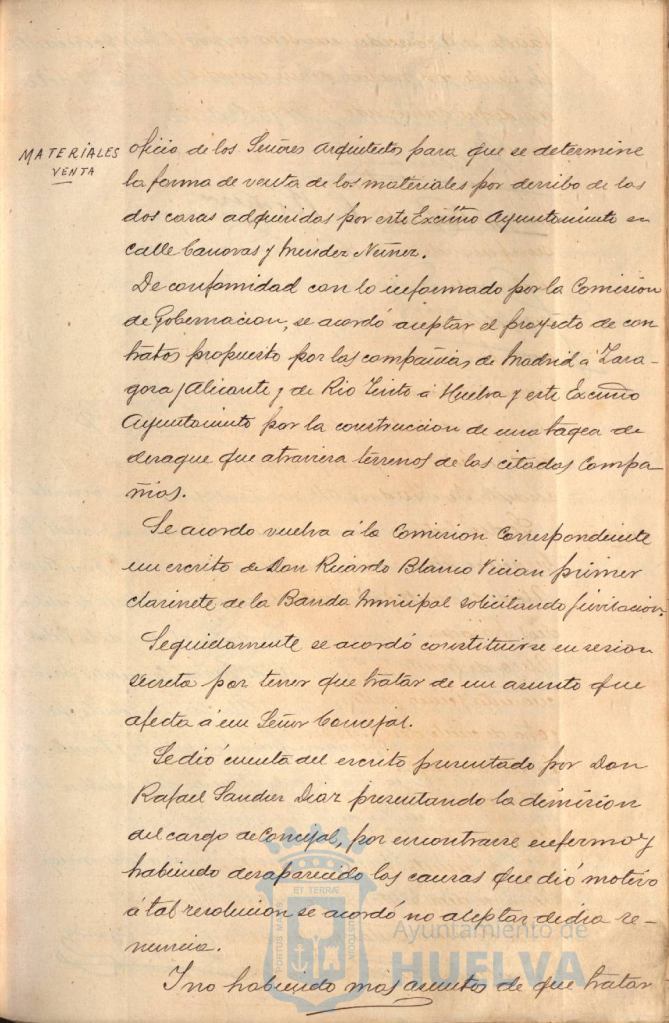 MATERIALES
VENTA
oficio de los Señores Arquitectos para que se determine
la forma de venta de los materiales por derribo de las
dos casas adquiridas por este Excmo Ayuntamiento en
calle Canovas y Mendez Nuñez.
De conformidad con lo informado por la Comision
de Gobernacion, se acordó aceptar el proyecto de con
tratos propuesto por las compañias de Madrid á Zara-
goza y Alicante y de Rio Tinto á Huelva y este Excmo
Ayuntamiento por la construccion de una tagea de
desague que atraviesa terrenos de las citadas Compa-
ñias.
Se acordo vuelva á la Comision Correspondiente
un escrito de Don Ricardo Blanco Vician primer
clarinete de la Banda Municipal solicitando jubilacion.
Seguidamente se acordó constituirse en sesion
secreta por tener que tratar de un asunto que
afecta á un Señor Concejal.
Se dió cuenta del escrito presentado por Don
Rafael Sanchez Diaz presentando la dimision
del cargo de Concejal, por encontrarse enfermo y
habiendo desaparecido las causas que dió motivo
á tal resolucion se acordó no aceptar dicha re-
nuncia.
Y no habiendo más asuntos de que tratar
PORTUS MARIS ET TERRÆ CUSTODIA
Ayuntamiento de
HUELVA